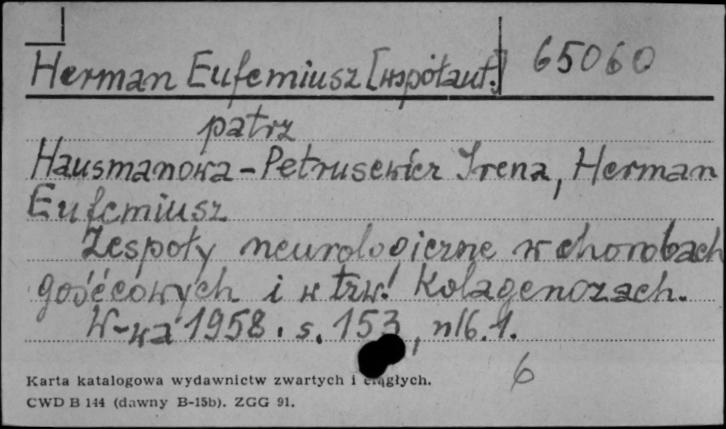 Herman Eufemiusz [współaut.] 65060
patrz
Hausmanowa-Petrusewicz Irena, Herman
Eufemiusz
Zespoły neurologiczne w chorobach
gośćcowych i w tzw. Kolagenozach.
W-wa 1958. s. 153, nlb. 1.
6
Karta katalogowa wydawnictw zwartych i ciągłych.
CWD B 144 (dawny B-15b). ZGG 91.